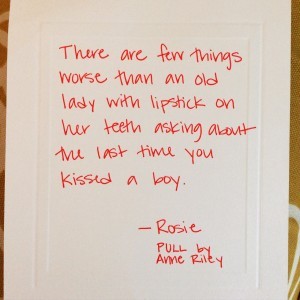 There are few things
worse than an old
lady with lipstick on
her teeth asking about
the last time you
kissed a boy.
— Rosie
PULL by
Anne Riley